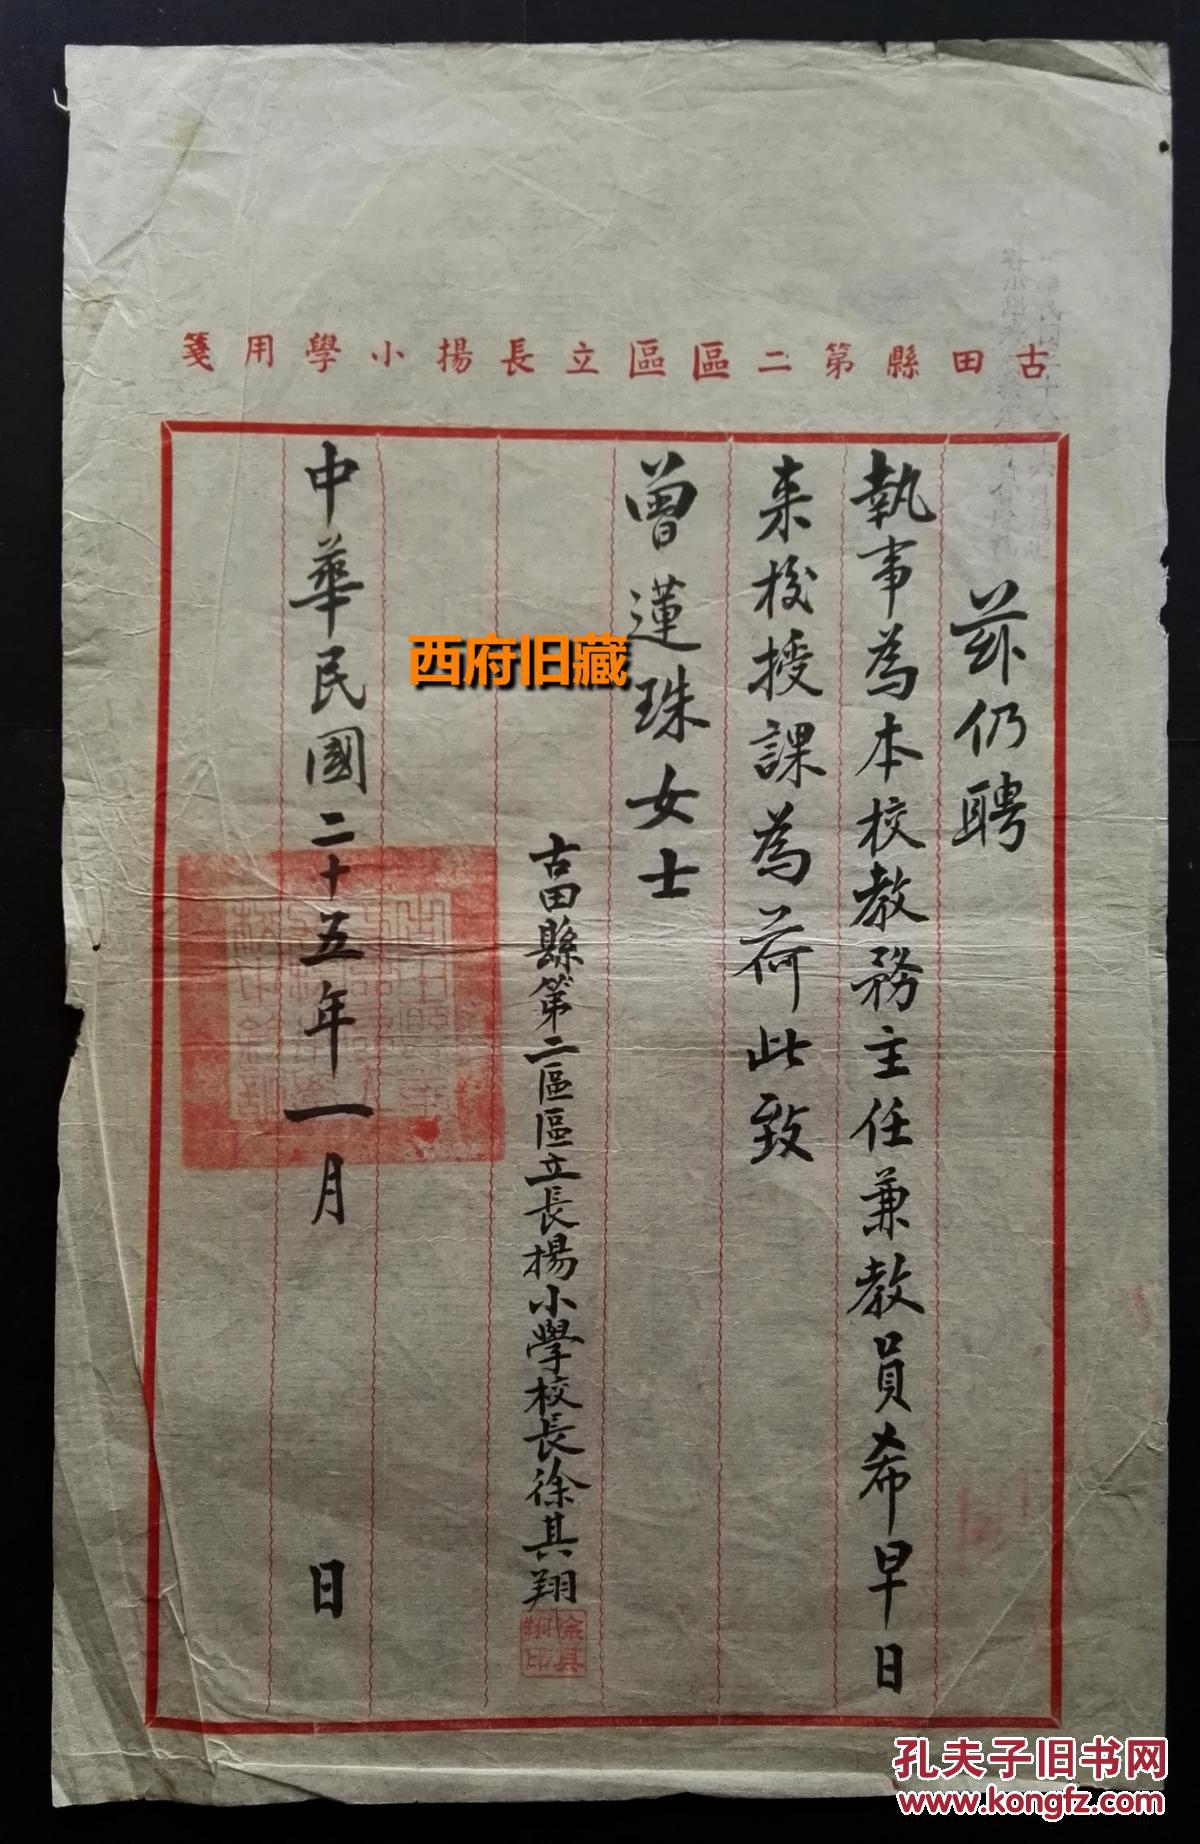 古田縣第二區區立長揚小學用箋
茲仍聘
執事為本校教務主任兼教員希早日
來校授課為荷此致
曾蓮珠女士
古田縣第二區區立長揚小學校長徐其翔
徐其翔印
中華民國二十五年一月　日
西府旧藏
孔夫子旧书网
www.kongfz.com